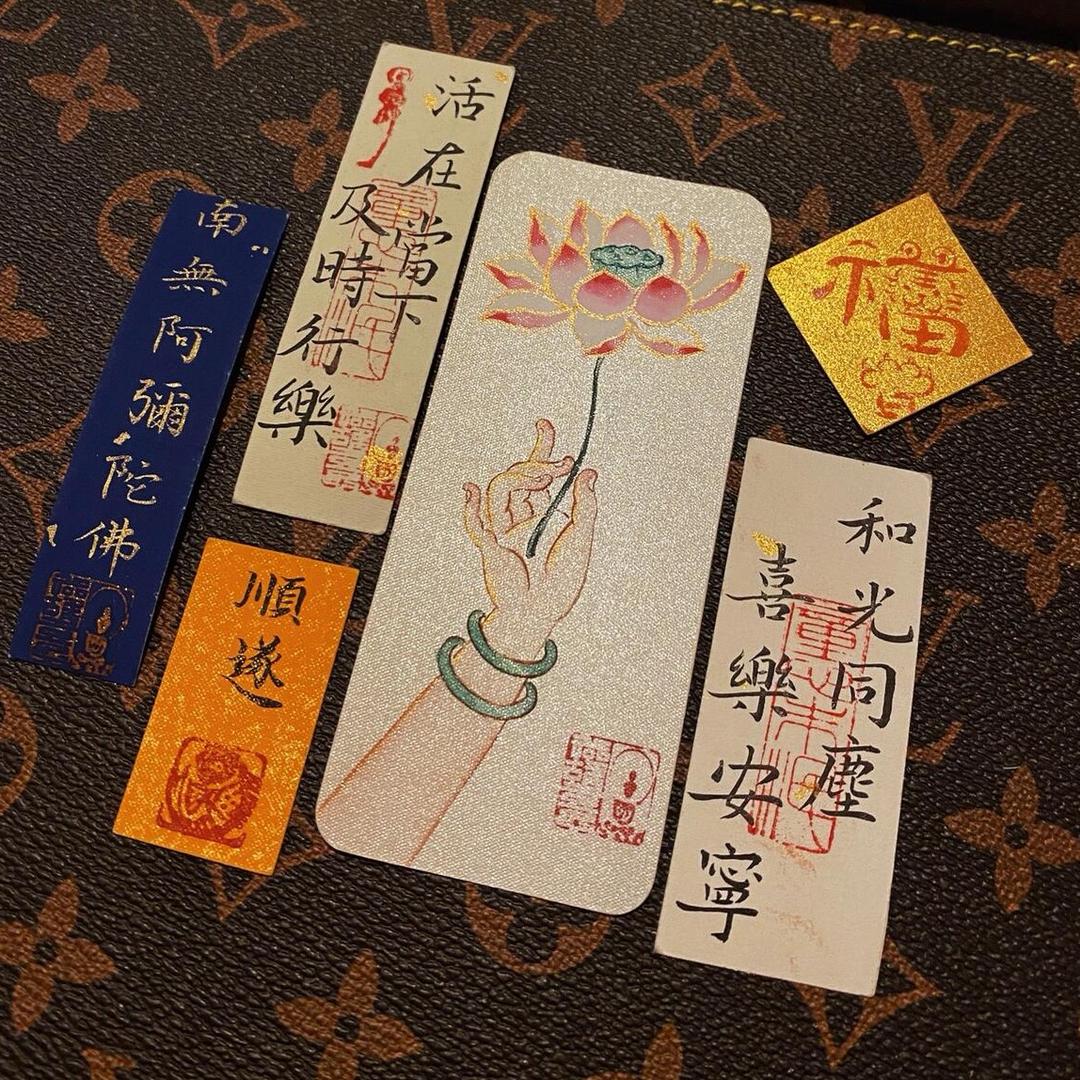 南無阿彌陀佛
活在當下
及時行樂
順遂
福
和光同塵
喜樂安寧